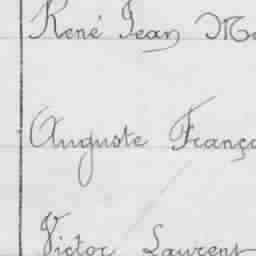 René Jean Ma
Auguste França
Victor Laurent